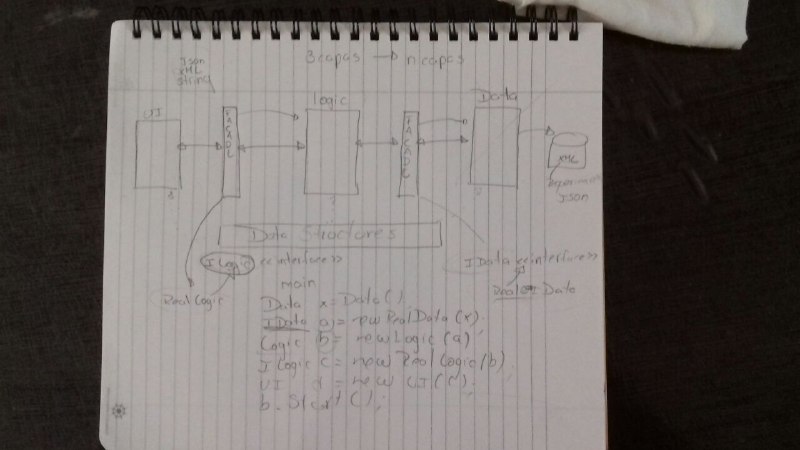 3 capas → n capas
Json
XML
String
UI
FACADE
Logic
FACADE
Data
XML
Json
Data Structures
ILogic <<interface>>
IData <<interface>>
RealLogic
Real Data
main
Data x = Data();
IData a = new RealData(x);
Logic b = new Logic(a)
ILogic c = new RealLogic(b)
UI d = new UI(c);
b.Start();